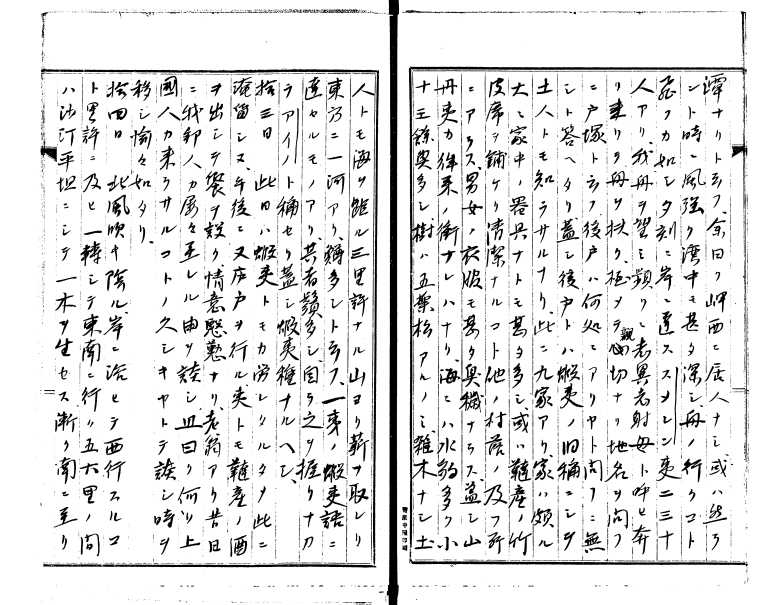 潭ナリト云フ余曰ク岬西ニ居人ナシ或ハ然ラ
ント時ニ風強ク湾中モ甚タ深シ舟ノ行クコト
飛フカ如シ夕刻ニ岸ニ達ススメレン夷二三十
人アリ我舟ヲ望ミ頻リニ老異老射毋ト呼ヒ奔
リ来リテ舟ヲ扶ク極メテ親切ナリ地名ヲ問フ
ニ戸塚ト云フ後戸ハ何処ニアリヤト問フニ無
シト答ヘタリ蓋シ後戸トハ蝦夷ノ旧稱ニシテ
土人トモ知ラサルナリ此ニ九家アリ家ハ頗ル
大ニ家中ノ器具ナトモ甚タ多シ或ハ難産ノ竹
皮席ヲ舗ケリ清潔ナルコト他ノ村落ノ及フ所
ニアラス男女ノ衣服モ甚タ臭穢ナラス蓋シ山
丹夷カ往来ノ衝ナレハナリ海ニハ水豹多ク小
十三餘奥多シ樹ハ五葉松アルノミ雑木ナシ土
人トモ海ヲ距ル三里許ナル山ヨリ薪ヲ取レリ
東方ニ一河アリ鱒多シト云フ一事ノ蝦夷語ニ
達セルモノアリ其者鬚多シ因テ之ヲ握リナカ
ラアイノト稱セリ蓋シ蝦夷種ナルヘシ
拾三日 此日ハ蝦夷トモカ労レタルタメ此ニ
淹留シヌ午後ニ又床戸ヲ行ル夷トモ難産ノ酒
ヲ出シテ饗ヲ設ク情意慇懃ナリ老翁アリ昔日
ニ我邦人カ屡々至レル由ヲ談シ且曰ク何ソ上
國人カ来ラサルコトノ久シキヤトテ談シ時ヲ
移シ愉々如タリ
拾四日 北風吹キ陰ル岸ニ沿ヒテ西行スルコ
ト里許ニ及ヒ一轉シテ東南ニ行ク五六里ノ間
ハ沙汀平坦ニシテ一木ヲ生セス漸ク南ニ至リ